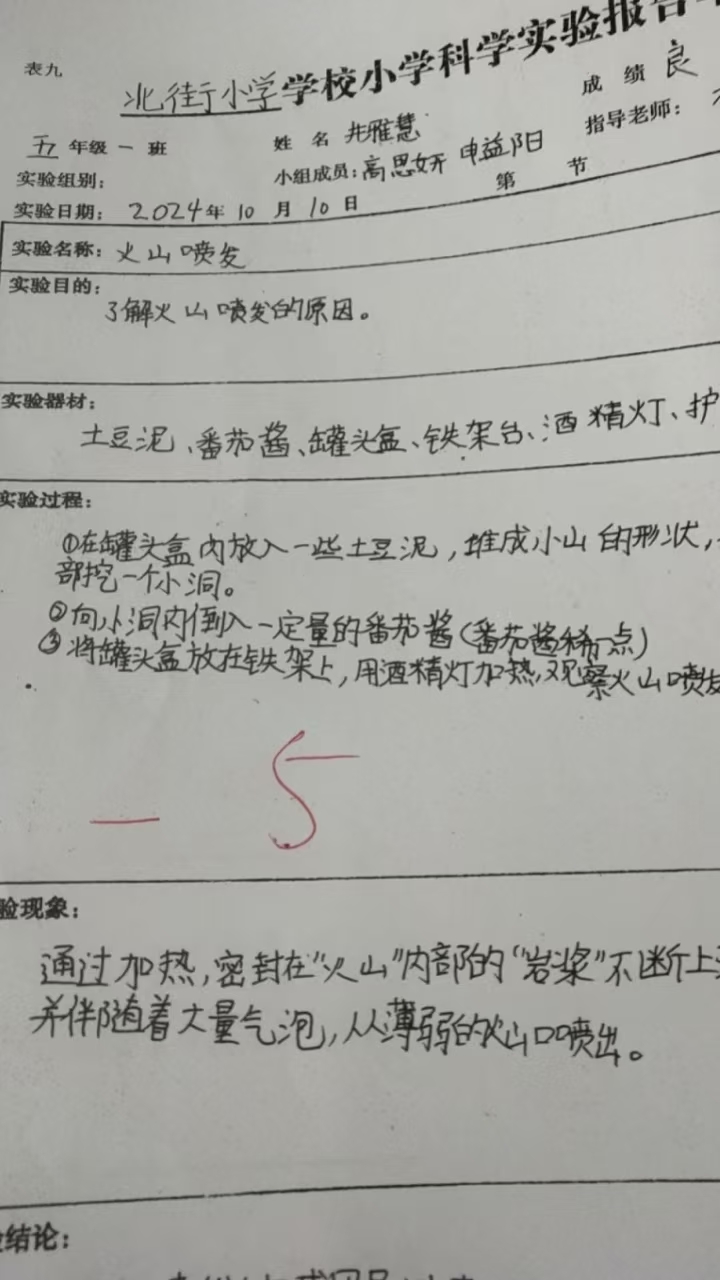 表九
北街小学学校小学科学实验报告
成绩 良
五年级一班 姓名 井雅慧 指导老师：
实验组别： 小组成员：高思妍 申益阳
实验日期：2024年10月10日 第 节
实验名称：火山喷发
实验目的：
了解火山喷发的原因。
实验器材：
土豆泥、番茄酱、罐头盒、铁架台、酒精灯、护
实验过程：
①在罐头盒内放入一些土豆泥，堆成小山的形状，
部挖一个小洞。
②向小洞内倒入一定量的番茄酱（番茄酱稀一点）
③将罐头盒放在铁架上，用酒精灯加热，观察火山喷发
— 5
验现象：
通过加热，密封在“火山”内部的“岩浆”不断上
并伴随着大量气泡，从薄弱的火山口喷出。
结论：